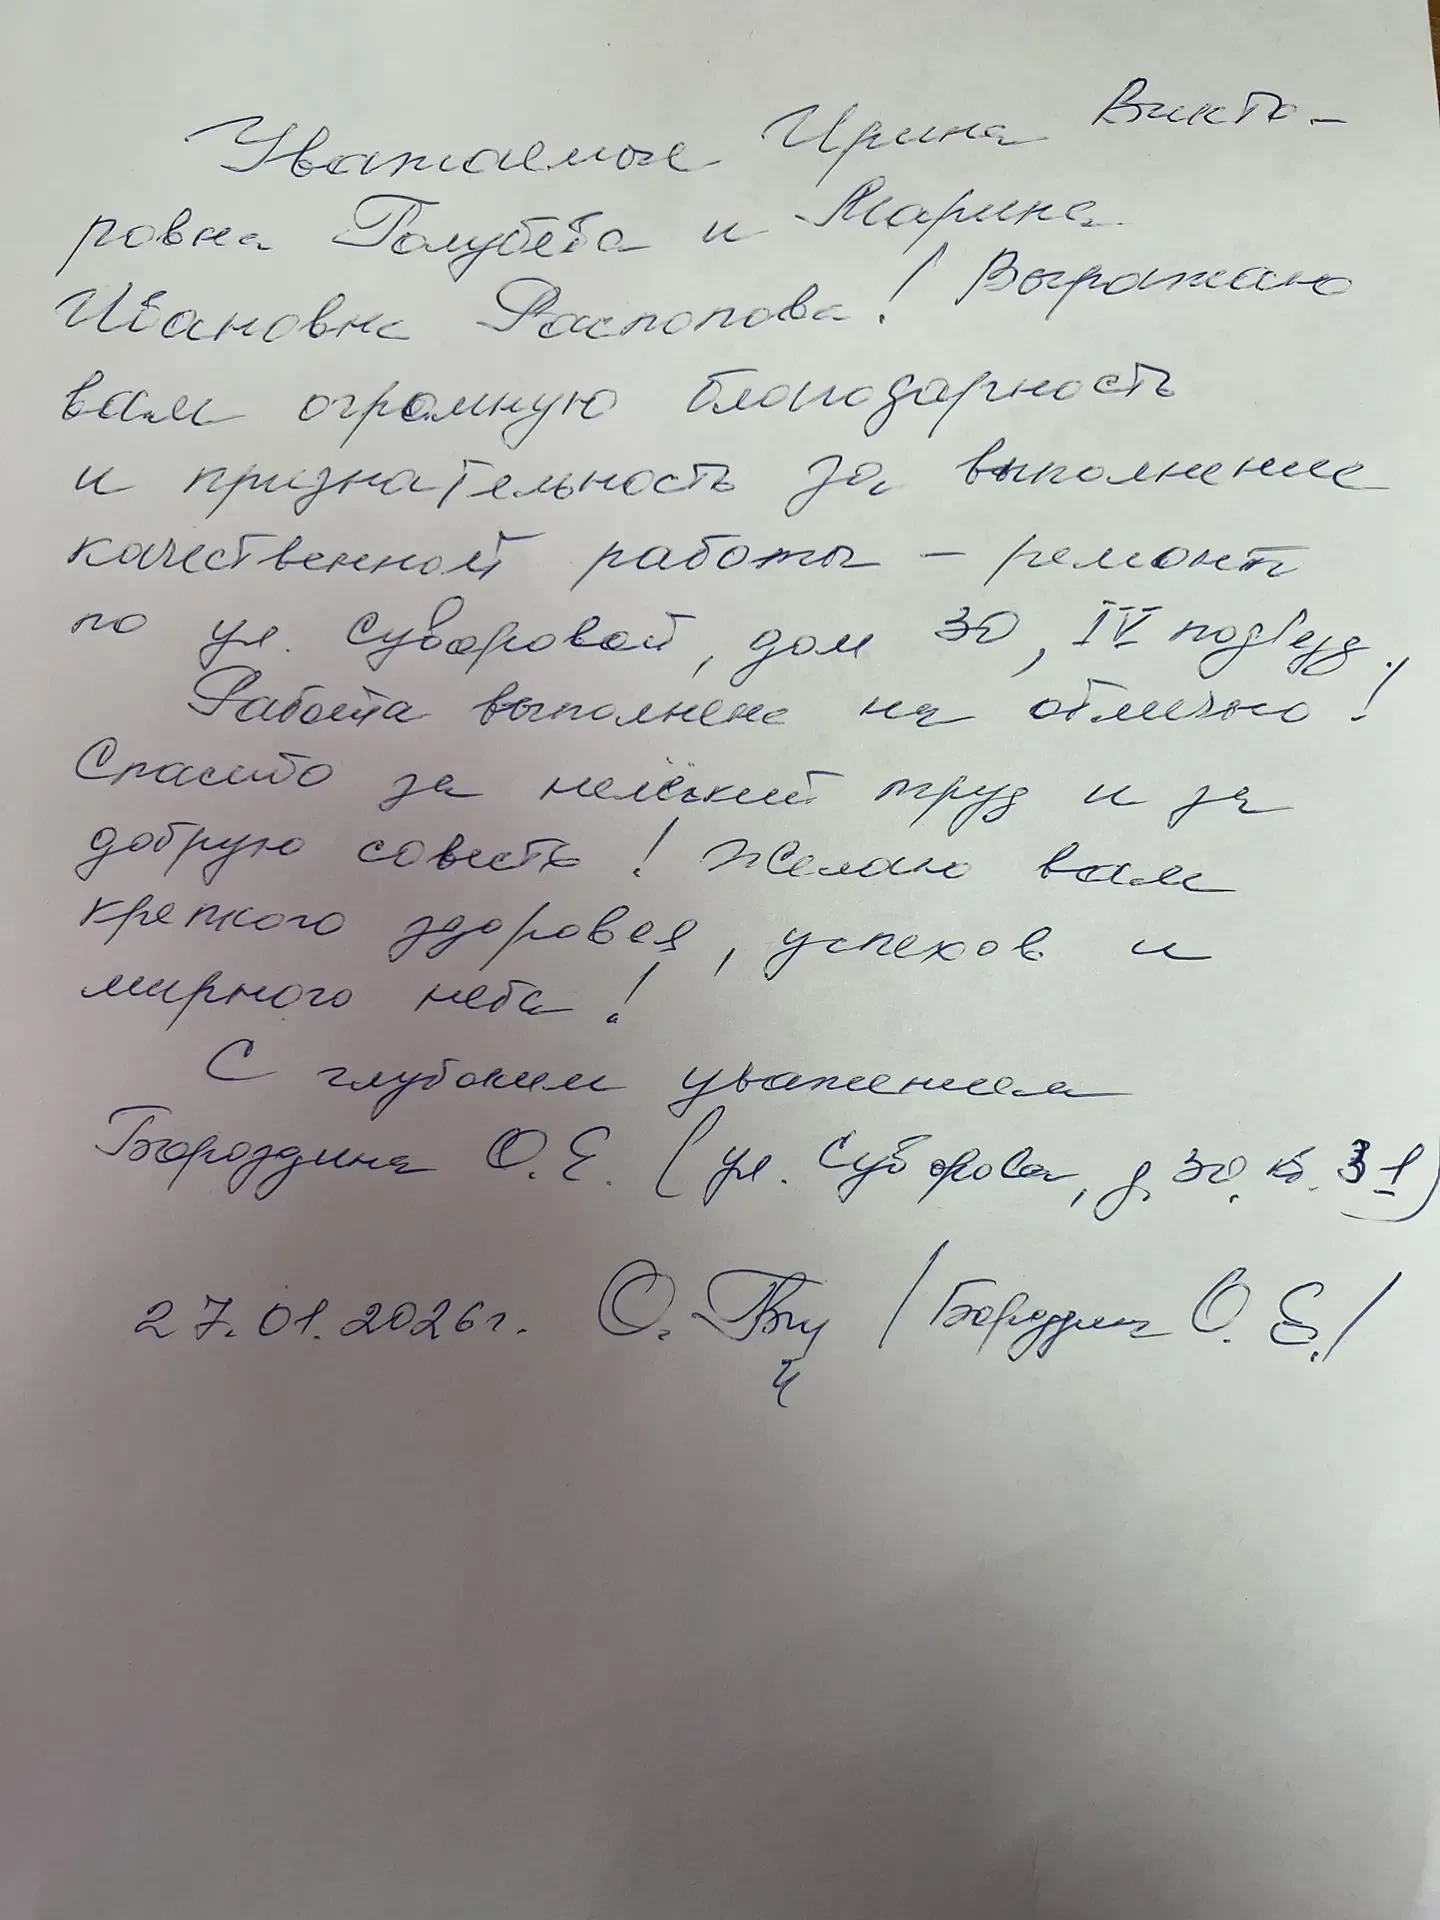 Уважаемые Ирина Викто-
ровна Голубева и Марина
Ивановна Распопова! Выражаю
вам огромную благодарность
и признательность за выполнение
качественной работы – ремонт
по ул. Суворовой, дом 30, IV подъезд.
Работа выполнена на отлично!
Спасибо за нелёгкий труд и за
добрую совесть! Желаю вам
крепкого здоровья, успехов и
мирного неба!
С глубоким уважением
Бороздина О.Е. (ул. Суворова, д. 30, кв. 31)
27.01.2026г. О. /Бороздина О.Е./